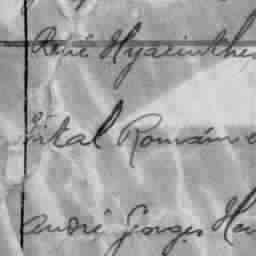 René Hyacinthe
Vital Romain
André Georges Hen